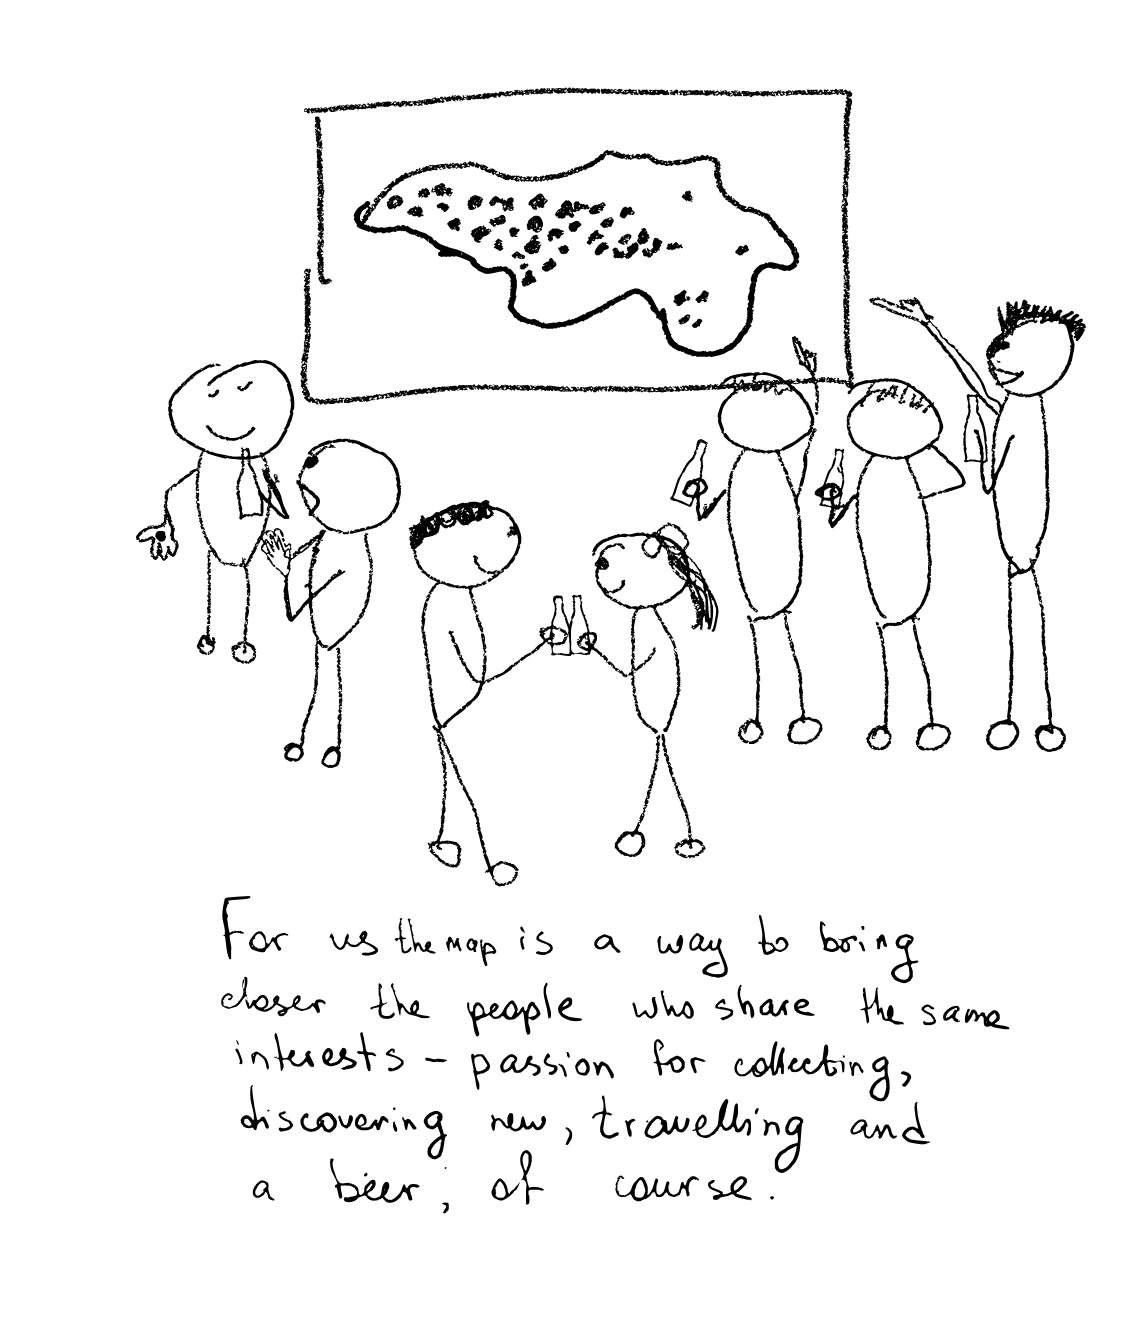 For us the map is a way to bring
closer the people who share the same
interests – passion for collecting,
discovering new, travelling and
a beer, of course.